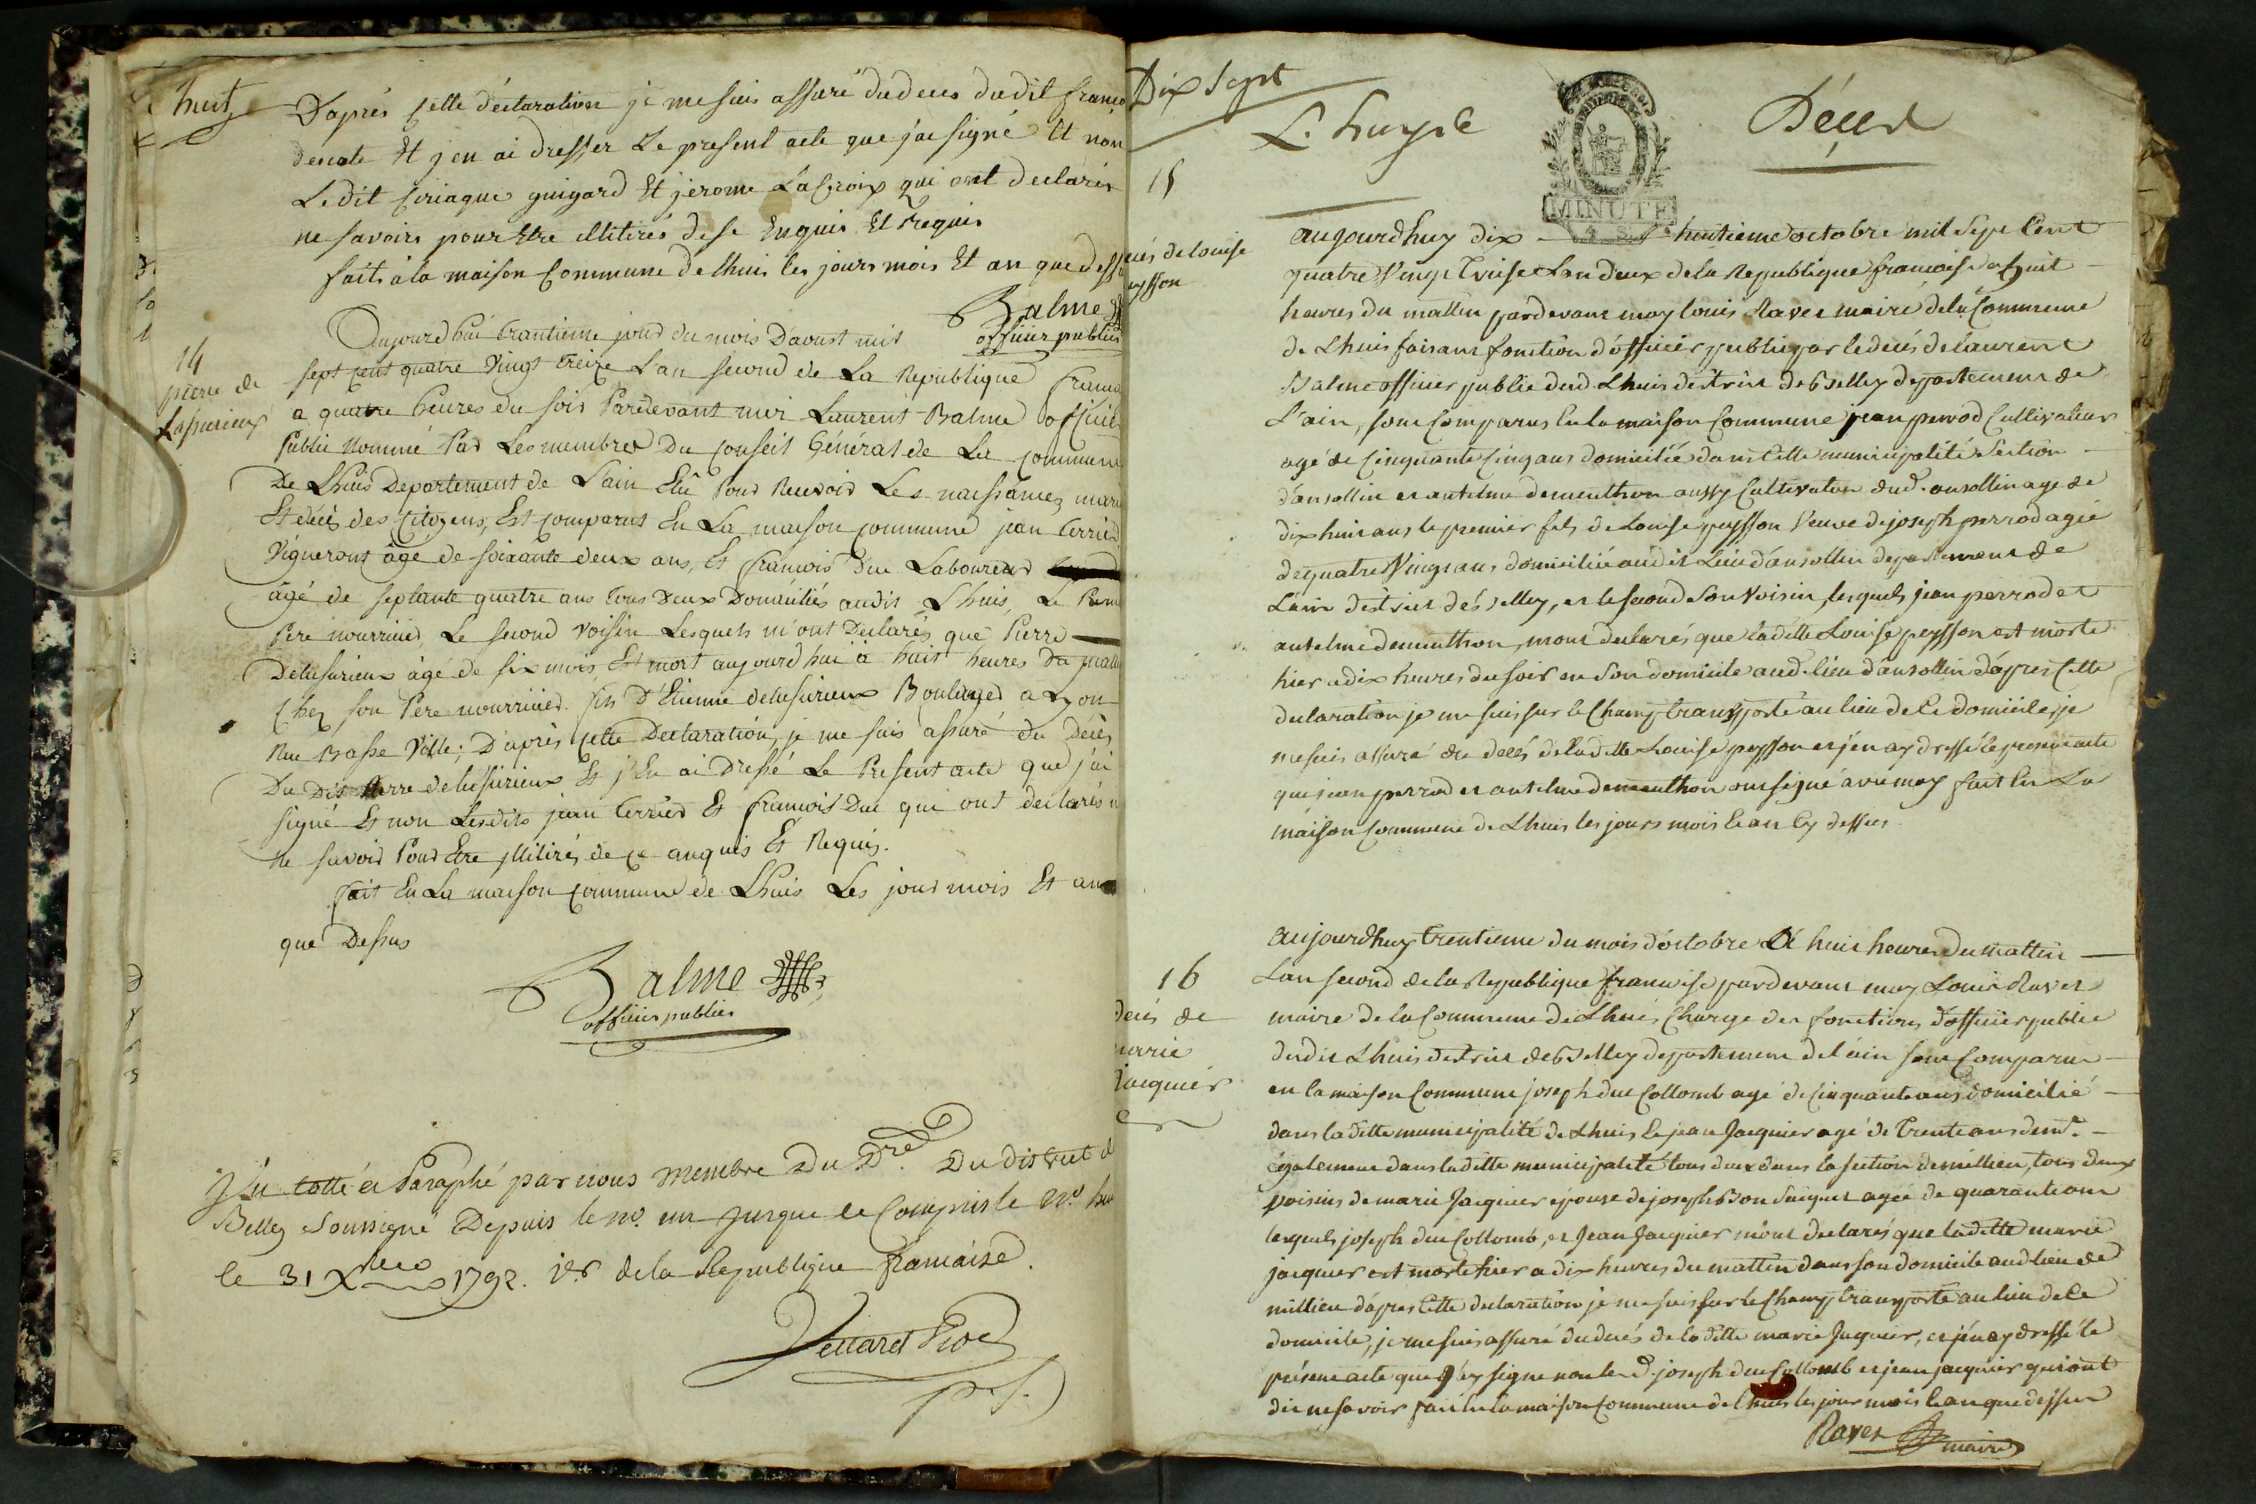 huit
D'aprés cette déclaration je me suis assuré du deces du dit franco
decoste Et j'en ai dresser Le present acte que j'ai signé Et non
Le dit Ciriaque guigard Et jerome Lacroix qui ont declarés
ne savoirs pour Etre illitirés de se Enquis Et Requis
fait à la maison Commune de Lhuis les jours mois Et an que dessu
Balme
officier public
14
pierre de
Lassurieux
Aujourd'hui trantieme jour du mois D'aoust mil
sept cent quatre Vingt treize L'an second de La Republique franca
a quatre heures du soir Pardevant moi Laurent Balme offici
Public Nommé Par Les membres Du Conseil Général de La Commune
De Lhuis Departement de L'ain Elu Pour Recevoir Les naissances mari
Et décès des Citoyens, Est Comparut En La maison Commune jean terrier
Vigneront âgé de soixante deux ans, Et francois Duc Laboureur
âgé de septante quatre ans tous Deux Domiciliés audit Lhuis, Le Prem
Pere nourricier, Le second Voisin Lesquels m'ont Declarés que Pierre
Delusurieux âgé de six mois, Est mort aujourd'hui à huit heures Du matin
Chez son Pere nourricier. fils D'Etienne delusurieux Boulanger a Lyon
Rue Basse Ville; D'après cette Declaration, je me suis assuré du Décès
Du Dit Pierre delussurieux Et j'En ai Dressé Le Present acte que j'ai
signé Et non Lesdits jean terrier Et francois Duc qui ont declarés n
ne savoir Pour Etre illitirés de ce anquis Et Requis.
fait En La maison Commune de Lhuis Les jour mois Et an
que Dessus
Balme
officier public
Vu cotté et Paraphé par nous membre Du D.re Du district d
Belley Soussigné Depuis le n.o un jusque le Compris le N.o hui
le 31 Xbre 1792. 1er de la Republique francaise.
p. s.
Dix Sept
L. huysle
Décès
MINUTE
15
cés de louise
eysson
aujourdhuy dix - huitieme octobre mil Sept Cent
quatre Vingt Treise Lan deux de la Republique francoise a huit
heures du mattin pardevant moy louis Ravet maire de la Commune
de Lhuis faisant fonction d'officier public par le decés de laurent
Balme officier public dud. Lhuis district de Belley departement de
L'ain, sont Comparus En la maison Commune jean perrod Cultivateur
agé de Cinquante Cinq ans domicilié dans cette municipalité Section
d'ansollin et antelme demeuthon aussy Cultivateur dud. ansollin age de
dix huit ans le premier fils de Louise peysson Veuve de joseph perrod agée
de quatre Vingt ans domiciliée audit Lieu d'ansollin departement de
L'ain district de Belley, et le second Son Voisin, lesquels jean perrod et
antelme demeuthon, mont declarés que laditte Louise peysson est morte
hier a dix heures du soir en Son domicile aud. lieu d'ansollin d'après Cette
declaration je me suis sur le Champ transporté au lieu de Ce domicile, je
me suis assuré du decés de ladite Louise peysson et jen ay dressé le present acte
que jean perrod et antelme demeuthon ont signé avec moy fait En La
maison Commune de Lhuis les jours mois Et an Cy dessus
16
deces de
marie
Jacquier
aujourdhuy trentieme du mois d'octobre a huit heures du mattin
Lan second de la Republique francoise pardevant moy Louis Ravet
maire de la Commune de Lhuis Charge des fonctions d'officier public
dudit Lhuis district de Belley departement de l'ain sont Comparus
en la maison Commune joseph duc Collomb agé de Cinquante ans domicilié
dans ladite municipalité de Lhuis Et jean Jacquier agé de trente ans dem.t
également dans ladite municipalité tous deux dans la section de millieu, tous deux
voisins de marie Jacquier epouse de joseph Bon Suiguet agée de quarante ans
lesquels joseph duc Collomb, et Jean Jacquier m'ont declarés que ladite marie
jacquier est morte hier a dix heures du mattin dans son domicile aud lieu de
millieu d'après Cette declaration je me suis sur le Champ transporté au lieu de Ce
domicile, je me suis assuré du decés de ladite marie Jaquier, et jen ay dressé le
présent acte que j'ay signe non led. joseph duc Collomb et jean jacquier qui ont
dit ne savoir fait En la maison Commune de Lhuis les jour mois Et an que dessus
Ravet maire